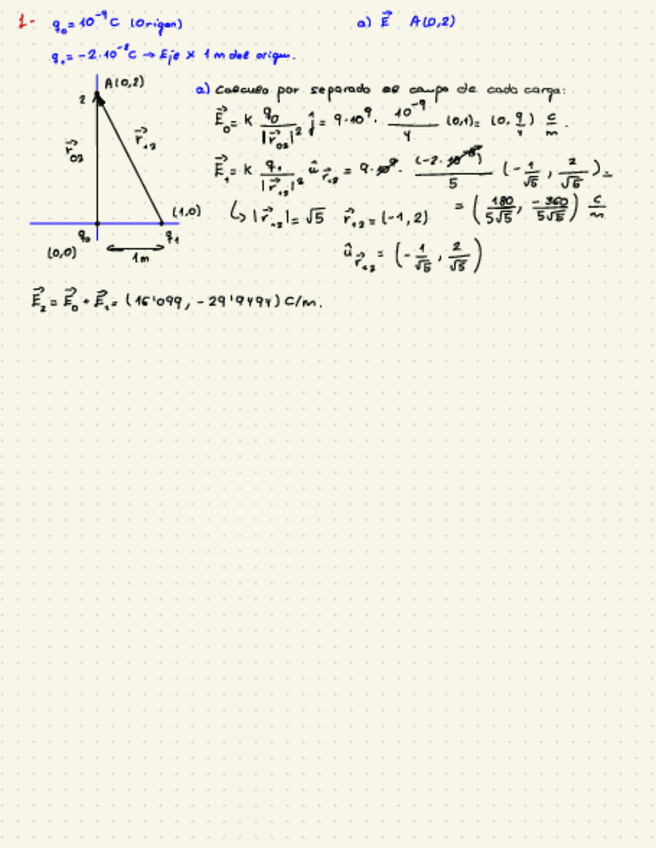 1- q₀ = 10⁻⁹ C (Origen) a) E⃗ A(0,2)
q₁ = -2·10⁻⁸ C → Eje X 1 m del origen.
A(0,2)
2
r⃗₀₂
r⃗₁₂
(1,0)
q₀
q₁
(0,0)
1m
a) Calculo por separado el campo de cada carga:
E⃗₀ = K q₀/|r⃗₀₂|² j⃗ = 9·10⁹ · 10⁻⁹/4 (0,1) = (0, 9/4) C/m.
E⃗₁ = K q₁/|r⃗₁₂|² û r⃗₁₂ = 9·10⁹ · (-2·10⁻⁸)/5 (-1/√5, 2/√5) =
= (180/5√5, -360/5√5) C/m
↳ |r⃗₁₂| = √5 r⃗₁₂ = (-1, 2)
û r⃗₁₂ = (-1/√5, 2/√5)
E⃗₂ = E⃗₀ + E⃗₁ = (16'099, -29'9494) C/m.